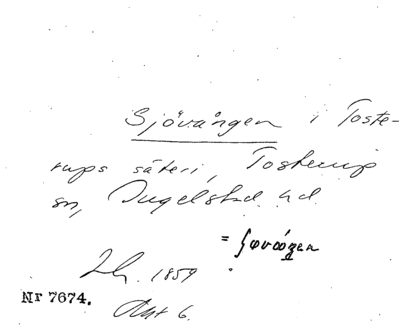 Sjövången i Toste-
rups säteri, Tosterup
sn, Ingelstad hd.
=
Lh. 1859
Nr 7674.
Akt 6.